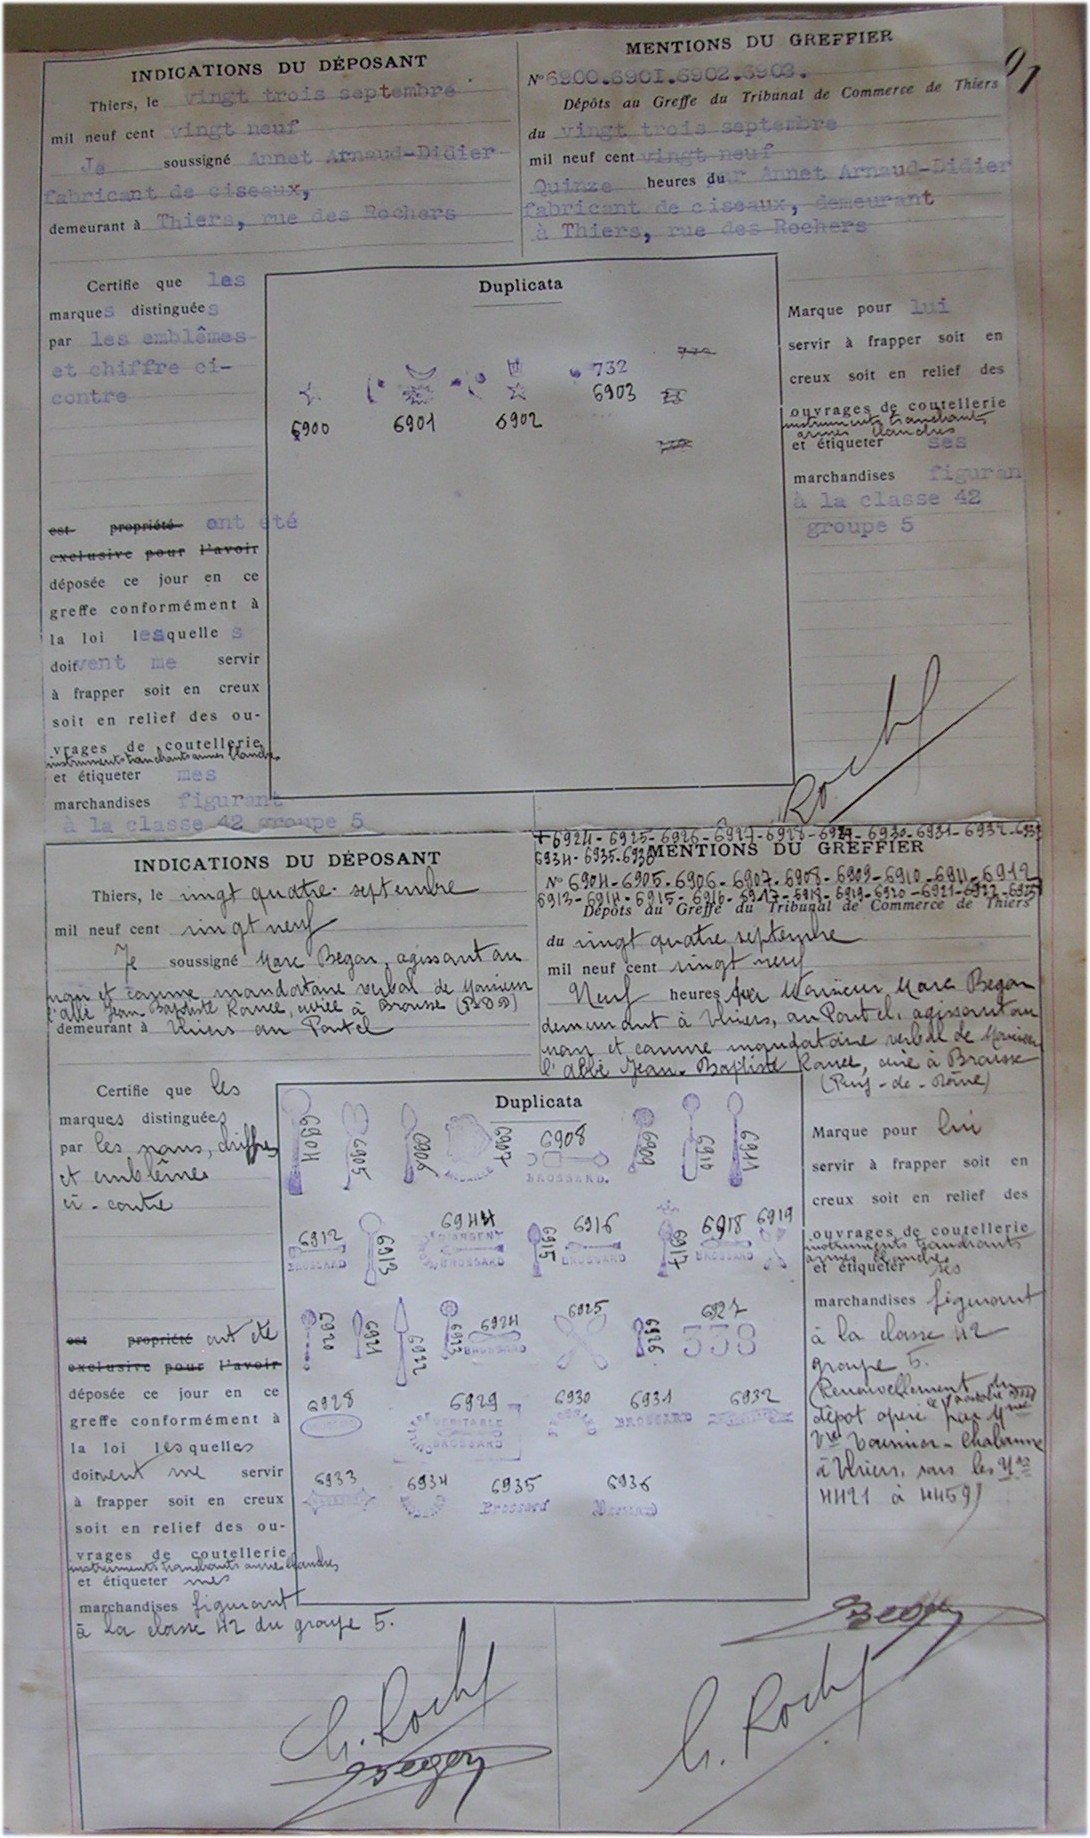 INDICATIONS DU DÉPOSANT
Thiers, le vingt trois septembre
mil neuf cent vingt neuf
Je soussigné Annet Arnaud-Didier
fabricant de ciseaux,
demeurant à Thiers, rue des Rochers
MENTIONS DU GREFFIER
91
N° 6900.6901.6902.6903.
Dépôts au Greffe du Tribunal de Commerce de Thiers
du vingt trois septembre
mil neuf cent vingt neuf
Quinze heures Annet Arnaud-Didier
fabricant de ciseaux, demeurant
à Thiers, rue des Rochers
Certifie que les
marques distinguées
par les emblêmes
et chiffre ci-
contre
est propriété ont été
exclusive pour l'avoir
déposée ce jour en ce
greffe conformément à
la loi lesquelle s
doivent me servir
à frapper soit en creux
soit en relief des ou-
vrages de coutellerie
instruments tranchants armes blanches
et étiqueter mes
marchandises figurant
à la classe 42 groupe 5
Duplicata
732
6900
6901
6902
6903
Marque pour lui
servir à frapper soit en
creux soit en relief des
ouvrages de coutellerie
instruments tranchants
armes blanches
et étiqueter ses
marchandises figuran
à la classe 42
groupe 5
Roch
INDICATIONS DU DÉPOSANT
Thiers, le vingt quatre septembre
mil neuf cent vingt neuf
Je soussigné Marc Begon, agissant au
nom et comme mandataire verbal de Monsieur
l'abbé Jean Baptiste curé à Brousse (P-D-D)
demeurant à Thiers au Pontel
+ 6924-6925-6926-6927-6928-6929-6930-6931-6932-6933
6934-6935-6936
MENTIONS DU GREFFIER
N° 6904-6905-6906-6907-6908-6909-6910-6911-6912
6913-6914-6915-6916-6917-6918-6919-6920-6921-6922-6923
Dépôts au Greffe du Tribunal de Commerce de Thiers
du vingt quatre septembre
mil neuf cent vingt neuf
Neuf heures par Monsieur Marc Begon
demeurant à Thiers, au Pontel, agissant au
nom et comme mandataire verbal de Monsieur
l'abbé Jean-Baptiste curé à Brousse
(Puy-de-Dôme)
Certifie que les
marques distinguées
par les noms, chiffres
et emblêmes
ci-contre
est propriété ont été
exclusive pour l'avoir
déposée ce jour en ce
greffe conformément à
la loi lesquelles
doivent me servir
à frapper soit en creux
soit en relief des ou-
vrages de coutellerie
instruments tranchants armes blanches
et étiqueter mes
marchandises figurant
à la classe 42 du groupe 5.
Duplicata
6904
6905
6906
6907
6908
BROSSARD.
6909
6910
6911
6912
BROSSARD
6913
6914
D'ARGENT
BROSSARD
6915
6916
BROSSARD
6917
6918
BROSSARD
6919
6920
6921
6922
6923
6924
BROSSARD
6925
6926
6927
538
6928
6929
VERITABLE
BROSSARD
6930
6931
BROSSARD
6932
6933
6934
6935
Brossard
6936
Brossard
Marque pour lui
servir à frapper soit en
creux soit en relief des
ouvrages de coutellerie
instruments tranchants
armes blanches
et étiqueter ses
marchandises figurant
à la classe 42
groupe 5.
(Renouvellement du
dépôt opéré par Mme
Vve Tournier-Chabanne
à Thiers, sous les Nos
4421 à 4459)
Begon
G. Roch
Begon
G. Roch